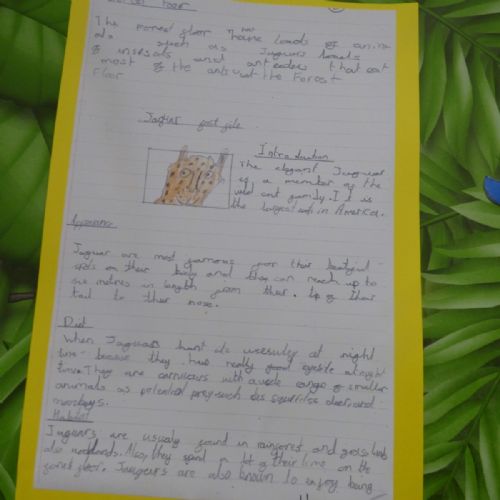 Forest floor
The forest floor is hot house loads of anim
als such as Jaguars loads
of insects and ant eaters that eat
most of the ants use the Forest
Floor
Jaguar fact file
Introduction
The elegant Jaguar
is a member of the
wild cat family. It is
the largest cat in America.
Appearance
Jaguar are most famous for their beautiful
spots on their body and can reach up to
six metres in length from their tip of their
tail to their nose.
Diet
When Jaguars hunt usually at night
time because they have really good eyesite at night
time. They are carnivores with a wide range of smaller
animals as potential prey such as deer and
monkeys.
Habitat
Jaguars are usually found in rainforest and grasslands
also woodlands. Also, they spend a lot of their time on the
forest floor. Jaguars are also known to enjoy being